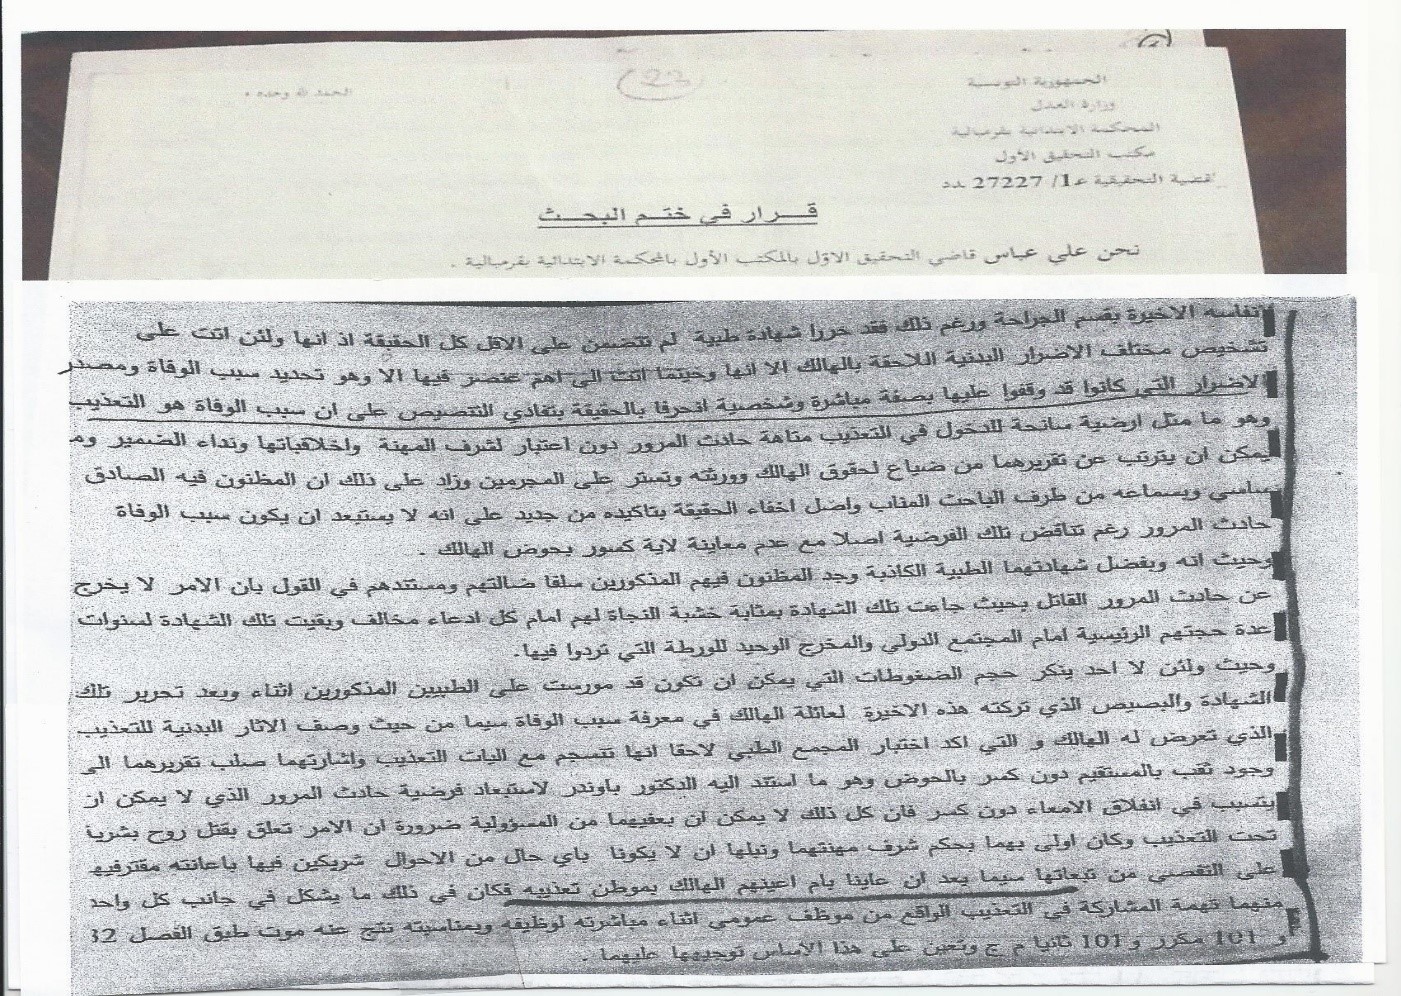 الجمهورية التونسية
وزارة العدل
المحكمة الابتدائية بقرمبالية
مكتب التحقيق الأول
القضية التحقيقية عـ1/ 27227 ـدد
الحمد لله وحده
23
قـــرار في ختـم البحـــث
نحن علي عباس قاضي التحقيق الاول بالمكتب الأول بالمحكمة الابتدائية بقرمبالية .
انفاسه الاخيرة بقسم الجراحة ورغم ذلك فقد حررا شهادة طبية لم تتضمن على الاقل كل الحقيقة اذ انها ولئن اتت على
تشخيص مختلف الاضرار البدنية اللاحقة بالهالك الا انها وحيثما اتت الى اهم عنصر فيها الا وهو تحديد سبب الوفاة ومصدر
الاضرار التي كانوا قد وقفوا عليها بصفة مباشرة وشخصية انحرفا بالحقيقة بتفادي التنصيص على ان سبب الوفاة هو التعذيب
وهو ما مثل ارضية سانحة للدخول في التعذيب متاهة حادث المرور دون اعتبار لشرف المهنة واخلاقياتها ونداء الضمير وم
يمكن ان يترتب عن تقريرهما من ضياع لحقوق الهالك وورثته وتستر على المجرمين وزاد على ذلك ان المظنون فيه الصادق
ساسي وبسماعه من طرف الباحث المناب واصل اخفاء الحقيقة بتاكيده من جديد على انه لا يستبعد ان يكون سبب الوفاة
حادث المرور رغم تناقض تلك الفرضية اصلا مع عدم معاينة لاية كسور بحوض الهالك .
وحيث انه وبفضل شهادتهما الطبية الكاذبة وجد المظنون فيهم المذكورين سلفا ضالتهم ومستندهم في القول بان الامر لا يخرج
عن حادث المرور القاتل بحيث جاءت تلك الشهادة بمثابة خشبة النجاة لهم امام كل ادعاء مخالف وبقيت تلك الشهادة لسنوات
عدة حجتهم الرئيسية امام المجتمع الدولي والمخرج الوحيد للورطة التي تردوا فيها.
وحيث ولئن لا احد ينكر حجم الضغوطات التي يمكن ان تكون قد مورست على الطبيبين المذكورين اثناء وبعد تحرير تلك
الشهادة والبصيص الذي تركته هذه الاخيرة لعائلة الهالك في معرفة سبب الوفاة سيما من حيث وصف الاثار البدنية للتعذيب
الذي تعرض له الهالك و التي اكد اختبار المجمع الطبي لاحقا انها تنسجم مع اليات التعذيب واشارتهما صلب تقريرهما الى
وجود ثقب بالمستقيم دون كسر بالحوض وهو ما استند اليه الدكتور باوندر لاستبعاد فرضية حادث المرور الذي لا يمكن ان
يتسبب في انفلاق الامعاء دون كسر فان كل ذلك لا يمكن ان يعفيهما من المسؤولية ضرورة ان الامر تعلق بقتل روح بشرية
تحت التعذيب وكان اولى بهما بحكم شرف مهنتهما ونبلها ان لا يكونا باي حال من الاحوال شريكين فيها باعانته مقترفيها
على التقصي من تبعاتها سيما بعد ان عاينا بام اعينهم الهالك بموطن تعذيبه فكان في ذلك ما يشكل في جانب كل واحد
منهما تهمة المشاركة في التعذيب الواقع من موظف عمومي اثناء مباشرته لوظيفه وبمناسبته نتج عنه موت طبق الفصل 32
و 101 مكرر و 101 ثانيا م ج وتعين على هذا الاساس توجيهها عليهما .